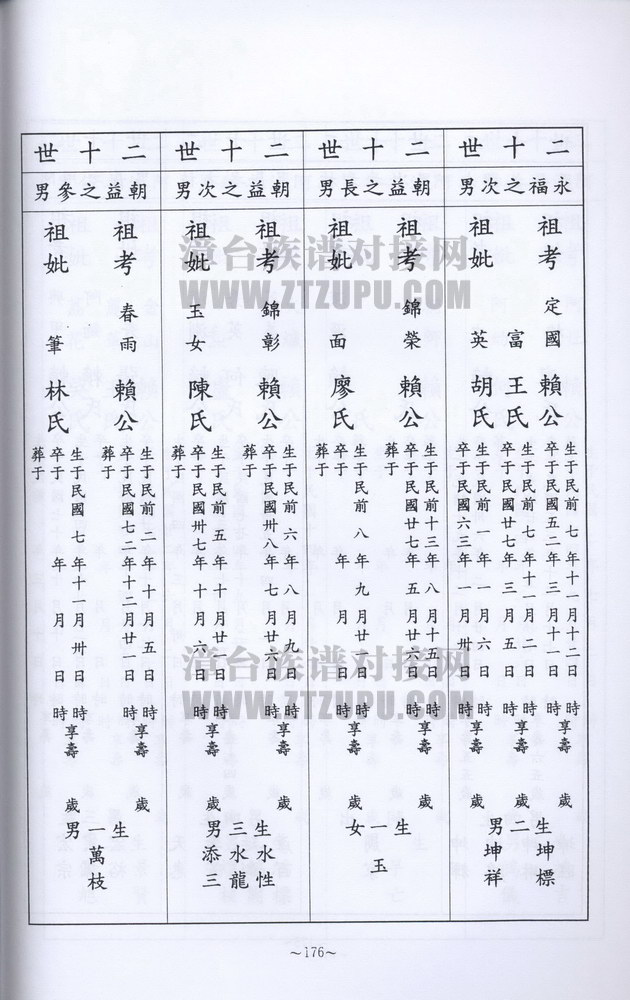 二十世
永福之次男
祖考 定國 賴公
祖妣 富 王氏
英 胡氏
生于民前七年十一月十二日 時
卒于民國五二年三月十一日 時享壽 歲
生于民前七年十一月二日 時
卒于民國廿七年三月五日 時享壽 歲
生于民前一年一月六日
卒于民國六三年一月卅日 時
生二男
坤標
坤祥
二十世
朝益之長男
祖考 錦榮 賴公
祖妣 面 廖氏
生于民前十三年八月十五日 時
卒于民國廿七年五月廿六日 時享壽 歲
葬于
生于民前八年九月廿一日 時
卒于 年 月 日 時享壽 歲
葬于
生一女
玉
二十世
朝益之次男
祖考 錦彰 賴公
祖妣 玉女 陳氏
生于民前六年八月九日 時
卒于民國卅八年七月廿六日 時享壽 歲
葬于
生于民前五年十月廿日 時
卒于民國卅七年十月六日 時享壽 歲
葬于
生三男
水性
水龍
添三
二十世
朝益之參男
祖考 春雨 賴公
祖妣 筆 林氏
生于民前二年十月五日 時
卒于民國七二年十二月廿一日 時享壽 歲
葬于
生于民國七年十一月卅日 時
卒于 年 月 日 時享壽 歲
葬于
生一男
萬枝
~176~
漳台族谱对接网
WWW.ZTZUPU.COM
漳台族谱对接网
WWW.ZTZUPU.COM